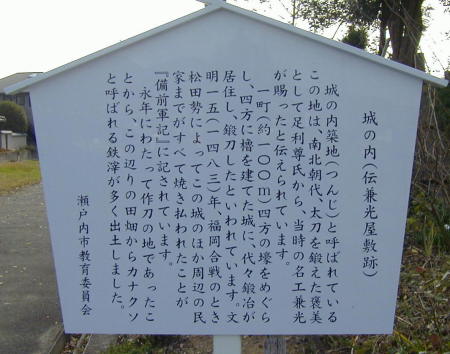 城の内（伝兼光屋敷跡）
城の内築地（つんじ）と呼ばれている
この地は、南北朝代、太刀を鍛えた褒美
として足利尊氏から、当時の名工兼光
が賜ったと伝えられています。
一町（約一〇〇m）四方の壕をめぐら
し、四方に櫓を建てた城に、代々鍛冶が
居住し、鍛刀したといわれています。文
明一五（一四八三）年、福岡合戦のとき
松田勢によってこの城のほか周辺の民
家までがすべて焼き払われたことが
『備前軍記』に記されています。
永年にわたって作刀の地であったこ
とから、この辺りの田畑からカナクソ
と呼ばれる鉄滓が多く出土しました。
瀬戸内市教育委員会